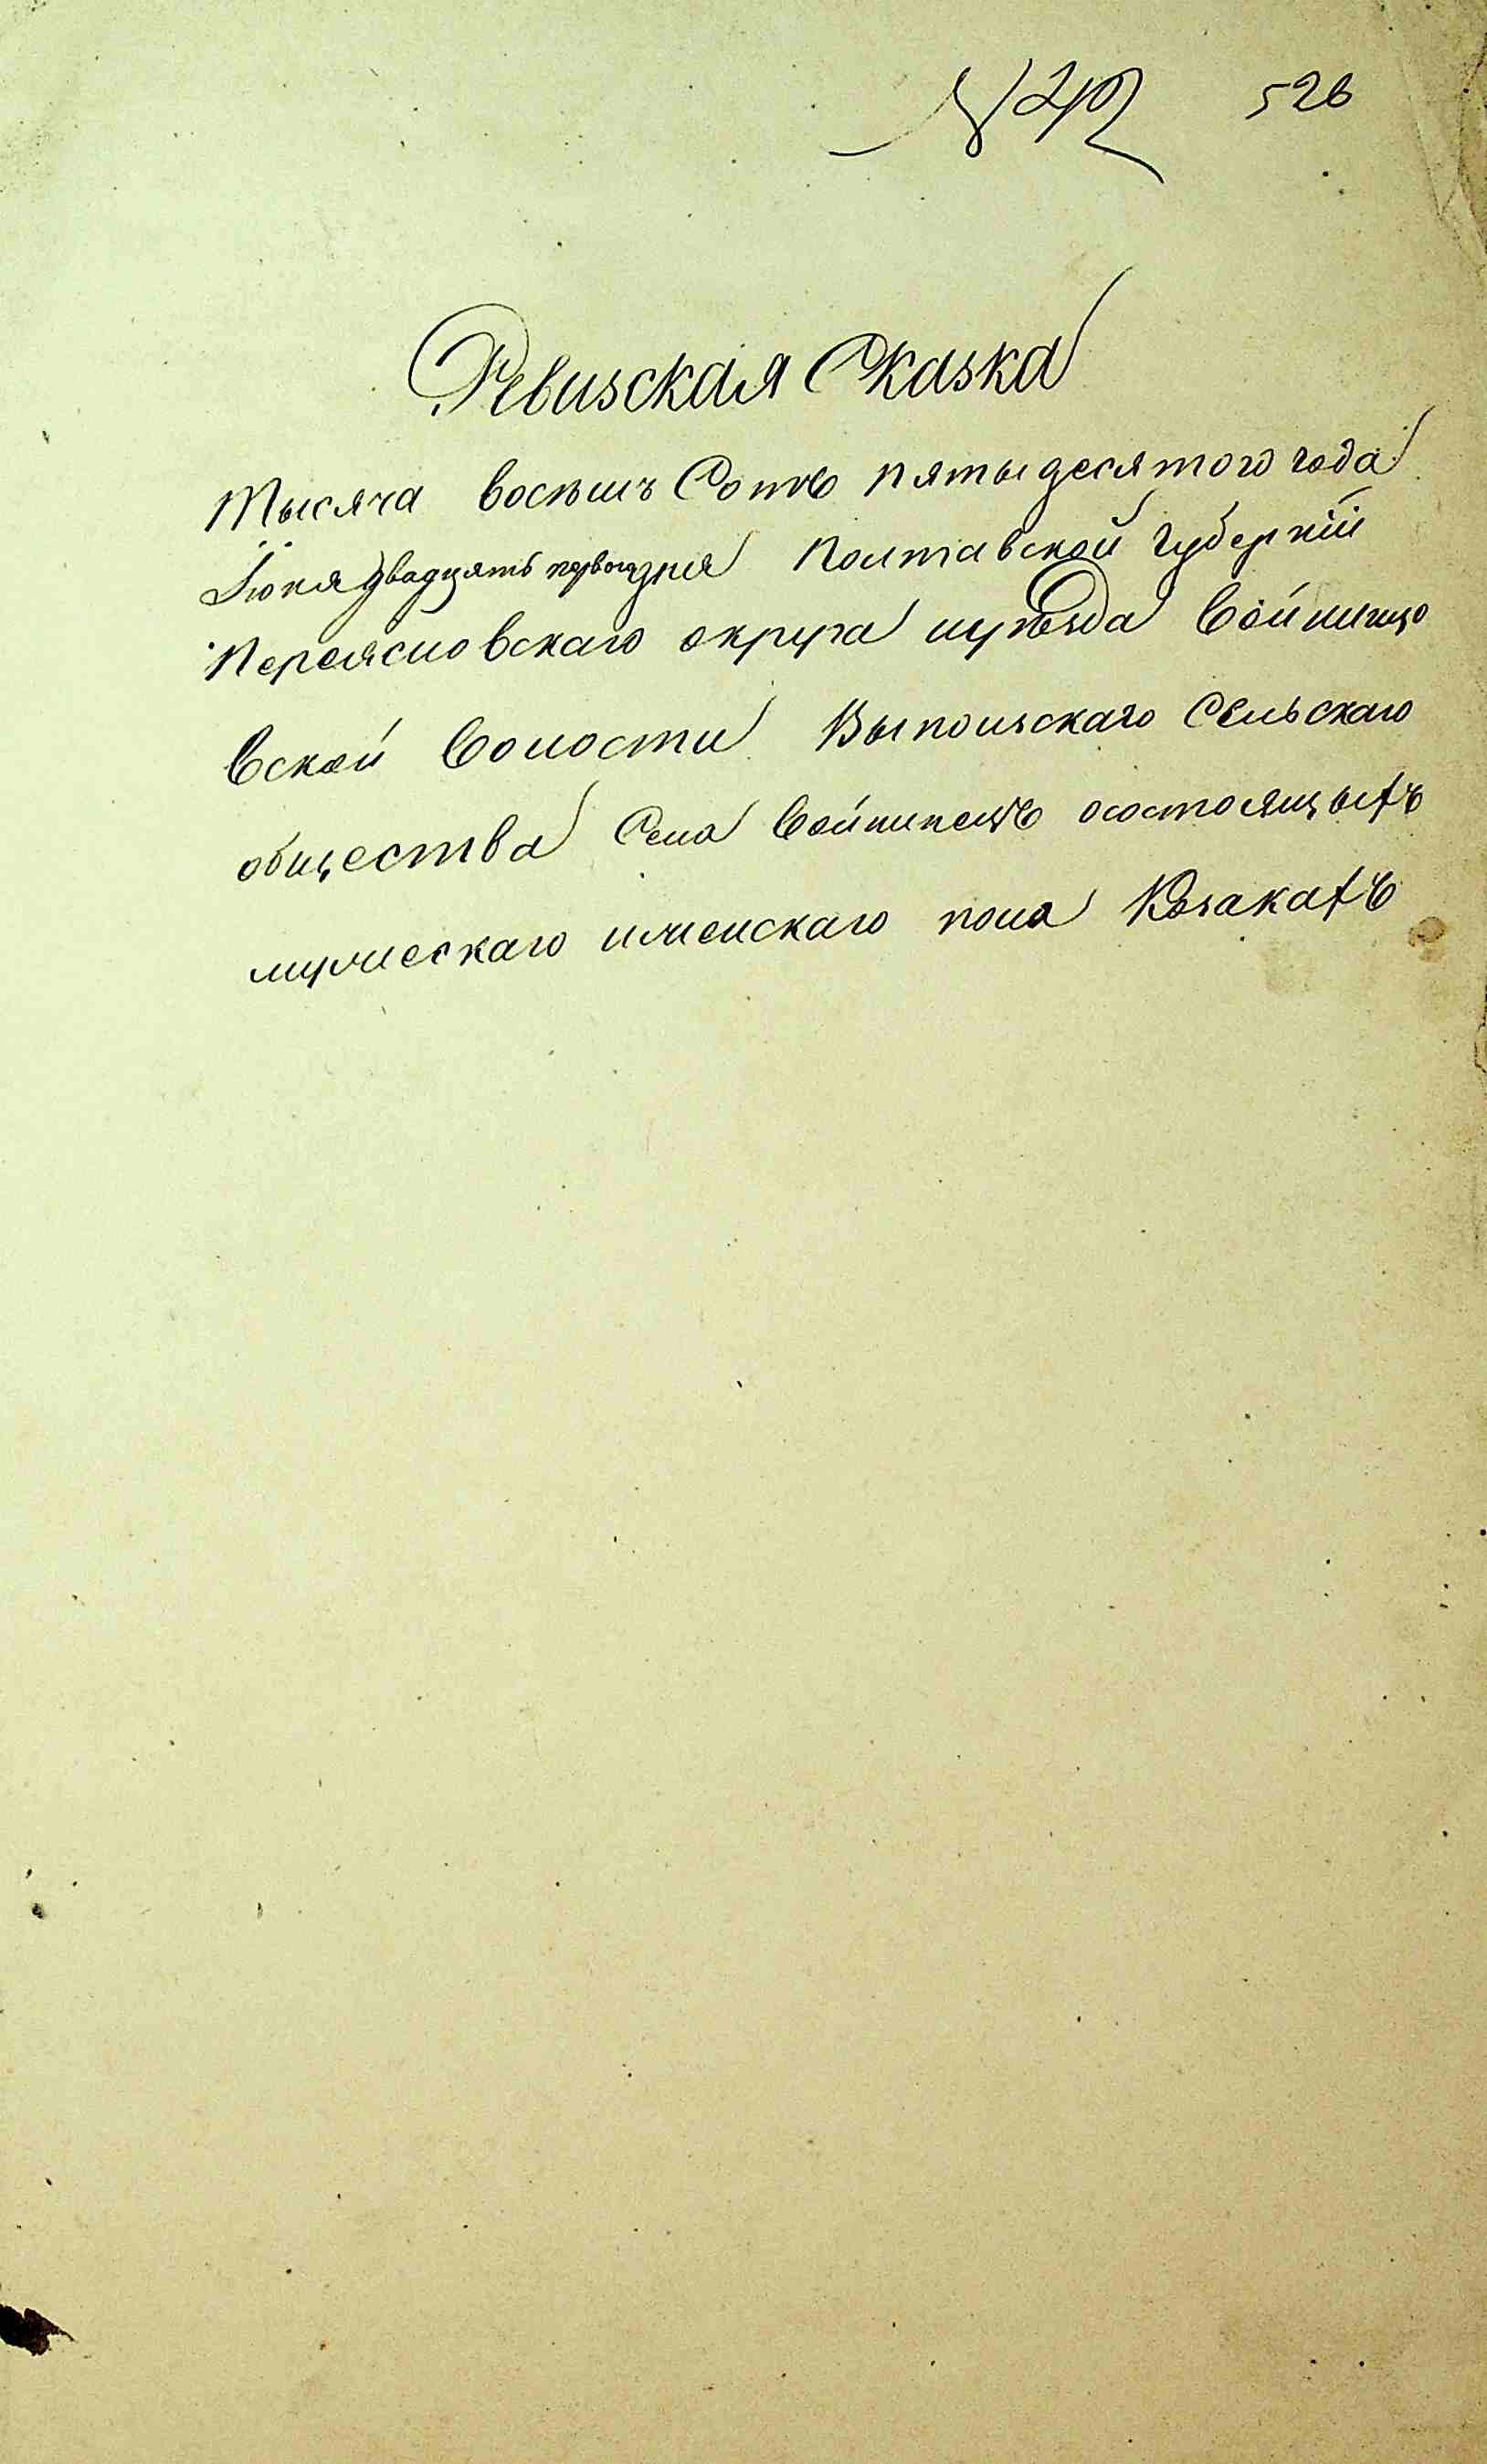 № 42 526
Ревизская Сказка
Тысяча восемь Сотъ пятьідесятого года
Іюня двадцять первогодня Полтавской Губерніи
Переяславскаго округа иуѣзда Войнинцо
вской Волости Выпольскаго Сельскаго
общества Села Войнинецъ осостоящыхъ
мужескаго иженскаго пола Козакахъ